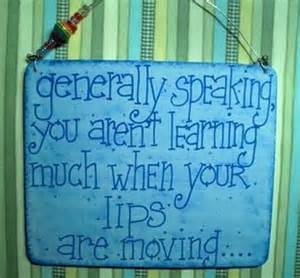 generally speaking,
you aren't learning
much when your
lips
are moving....